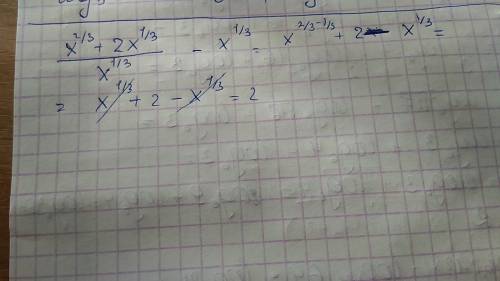 (x^{2/3} + 2x^{1/3}) / x^{1/3} - x^{1/3} = x^{2/3-1/3} + 2 - x^{1/3} =
= x^{1/3} + 2 - x^{1/3} = 2